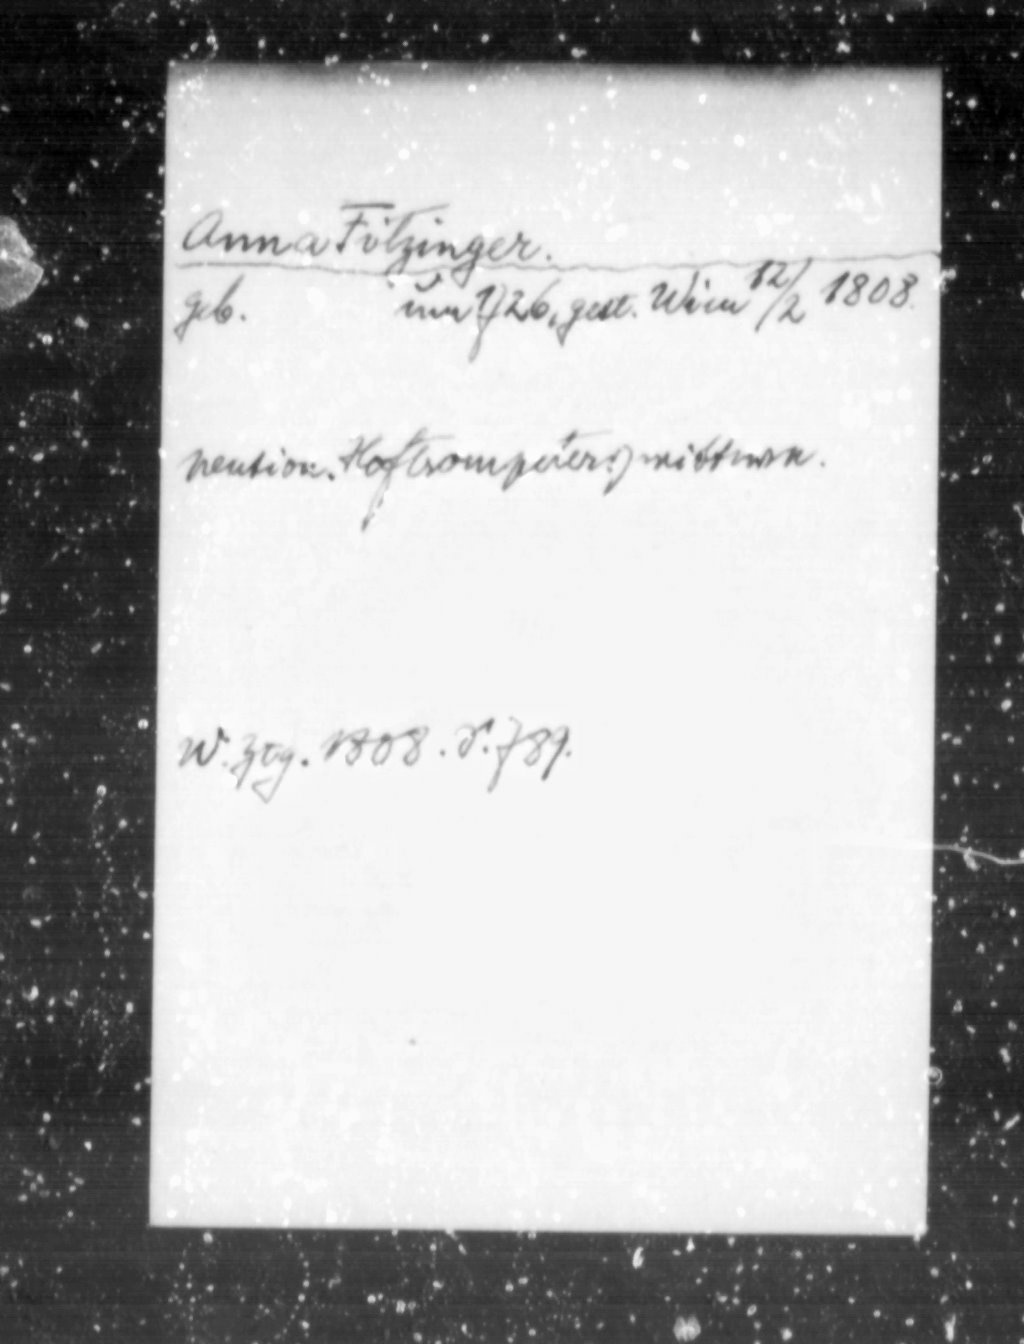 Anna Fitzinger.
geb. um 1726, gest. Wien 12/2 1808.
pension. Hoftrompeterswittwe.
W. Ztg. 1808. S. 789.